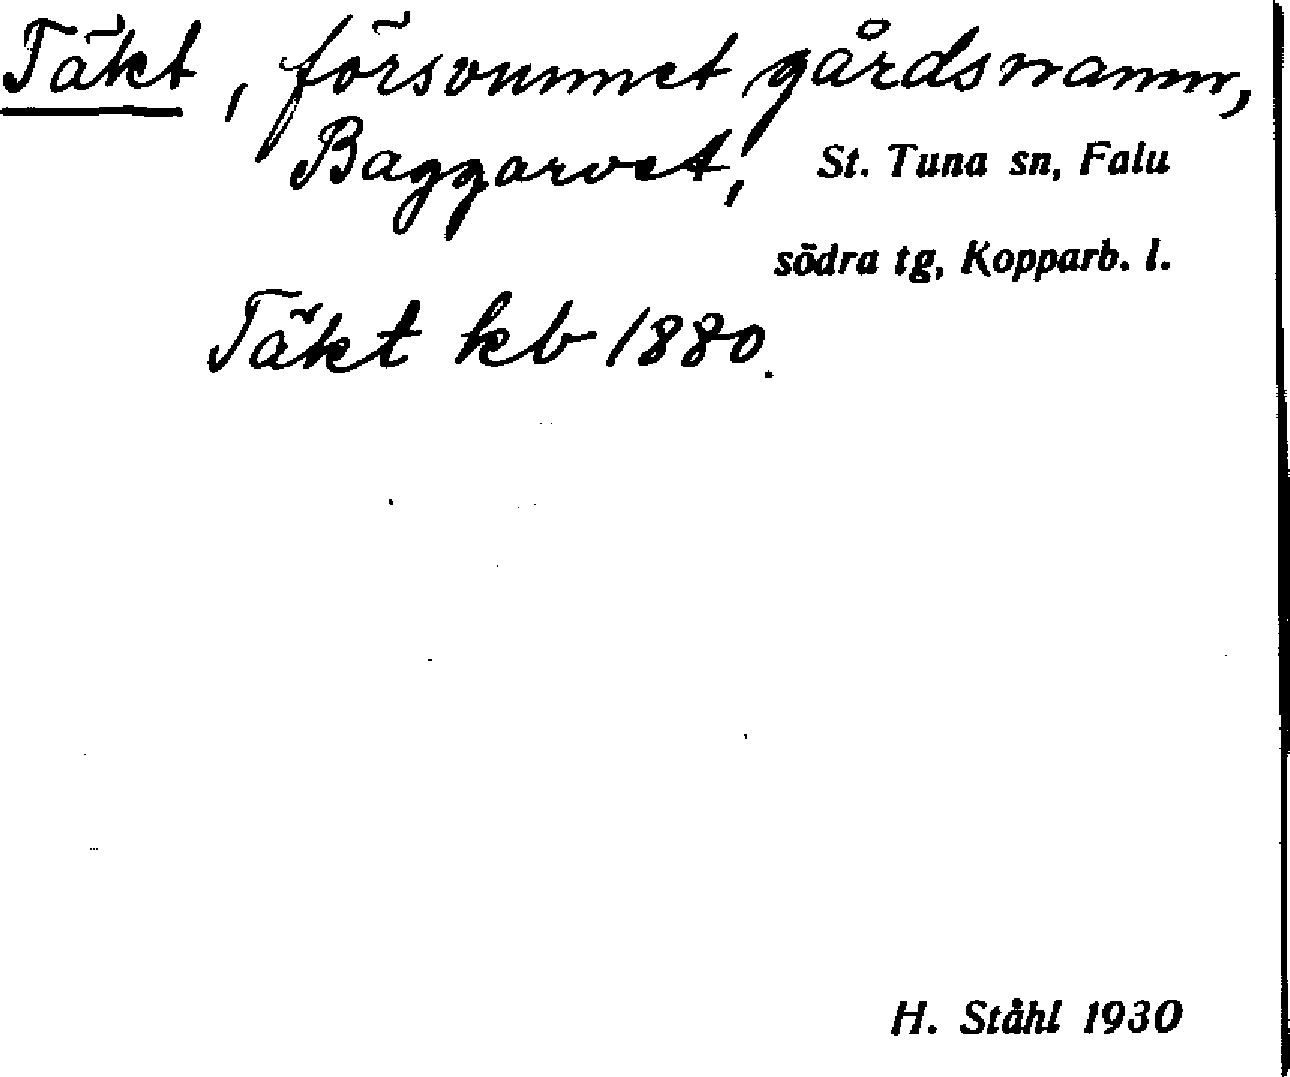 Täkt, försvunnet gårdsnamn,
Baggarvet, St. Tuna sn, Falu
södra tg, Kopparb. l.
Täkt kb 1880.
H. Ståhl 1930